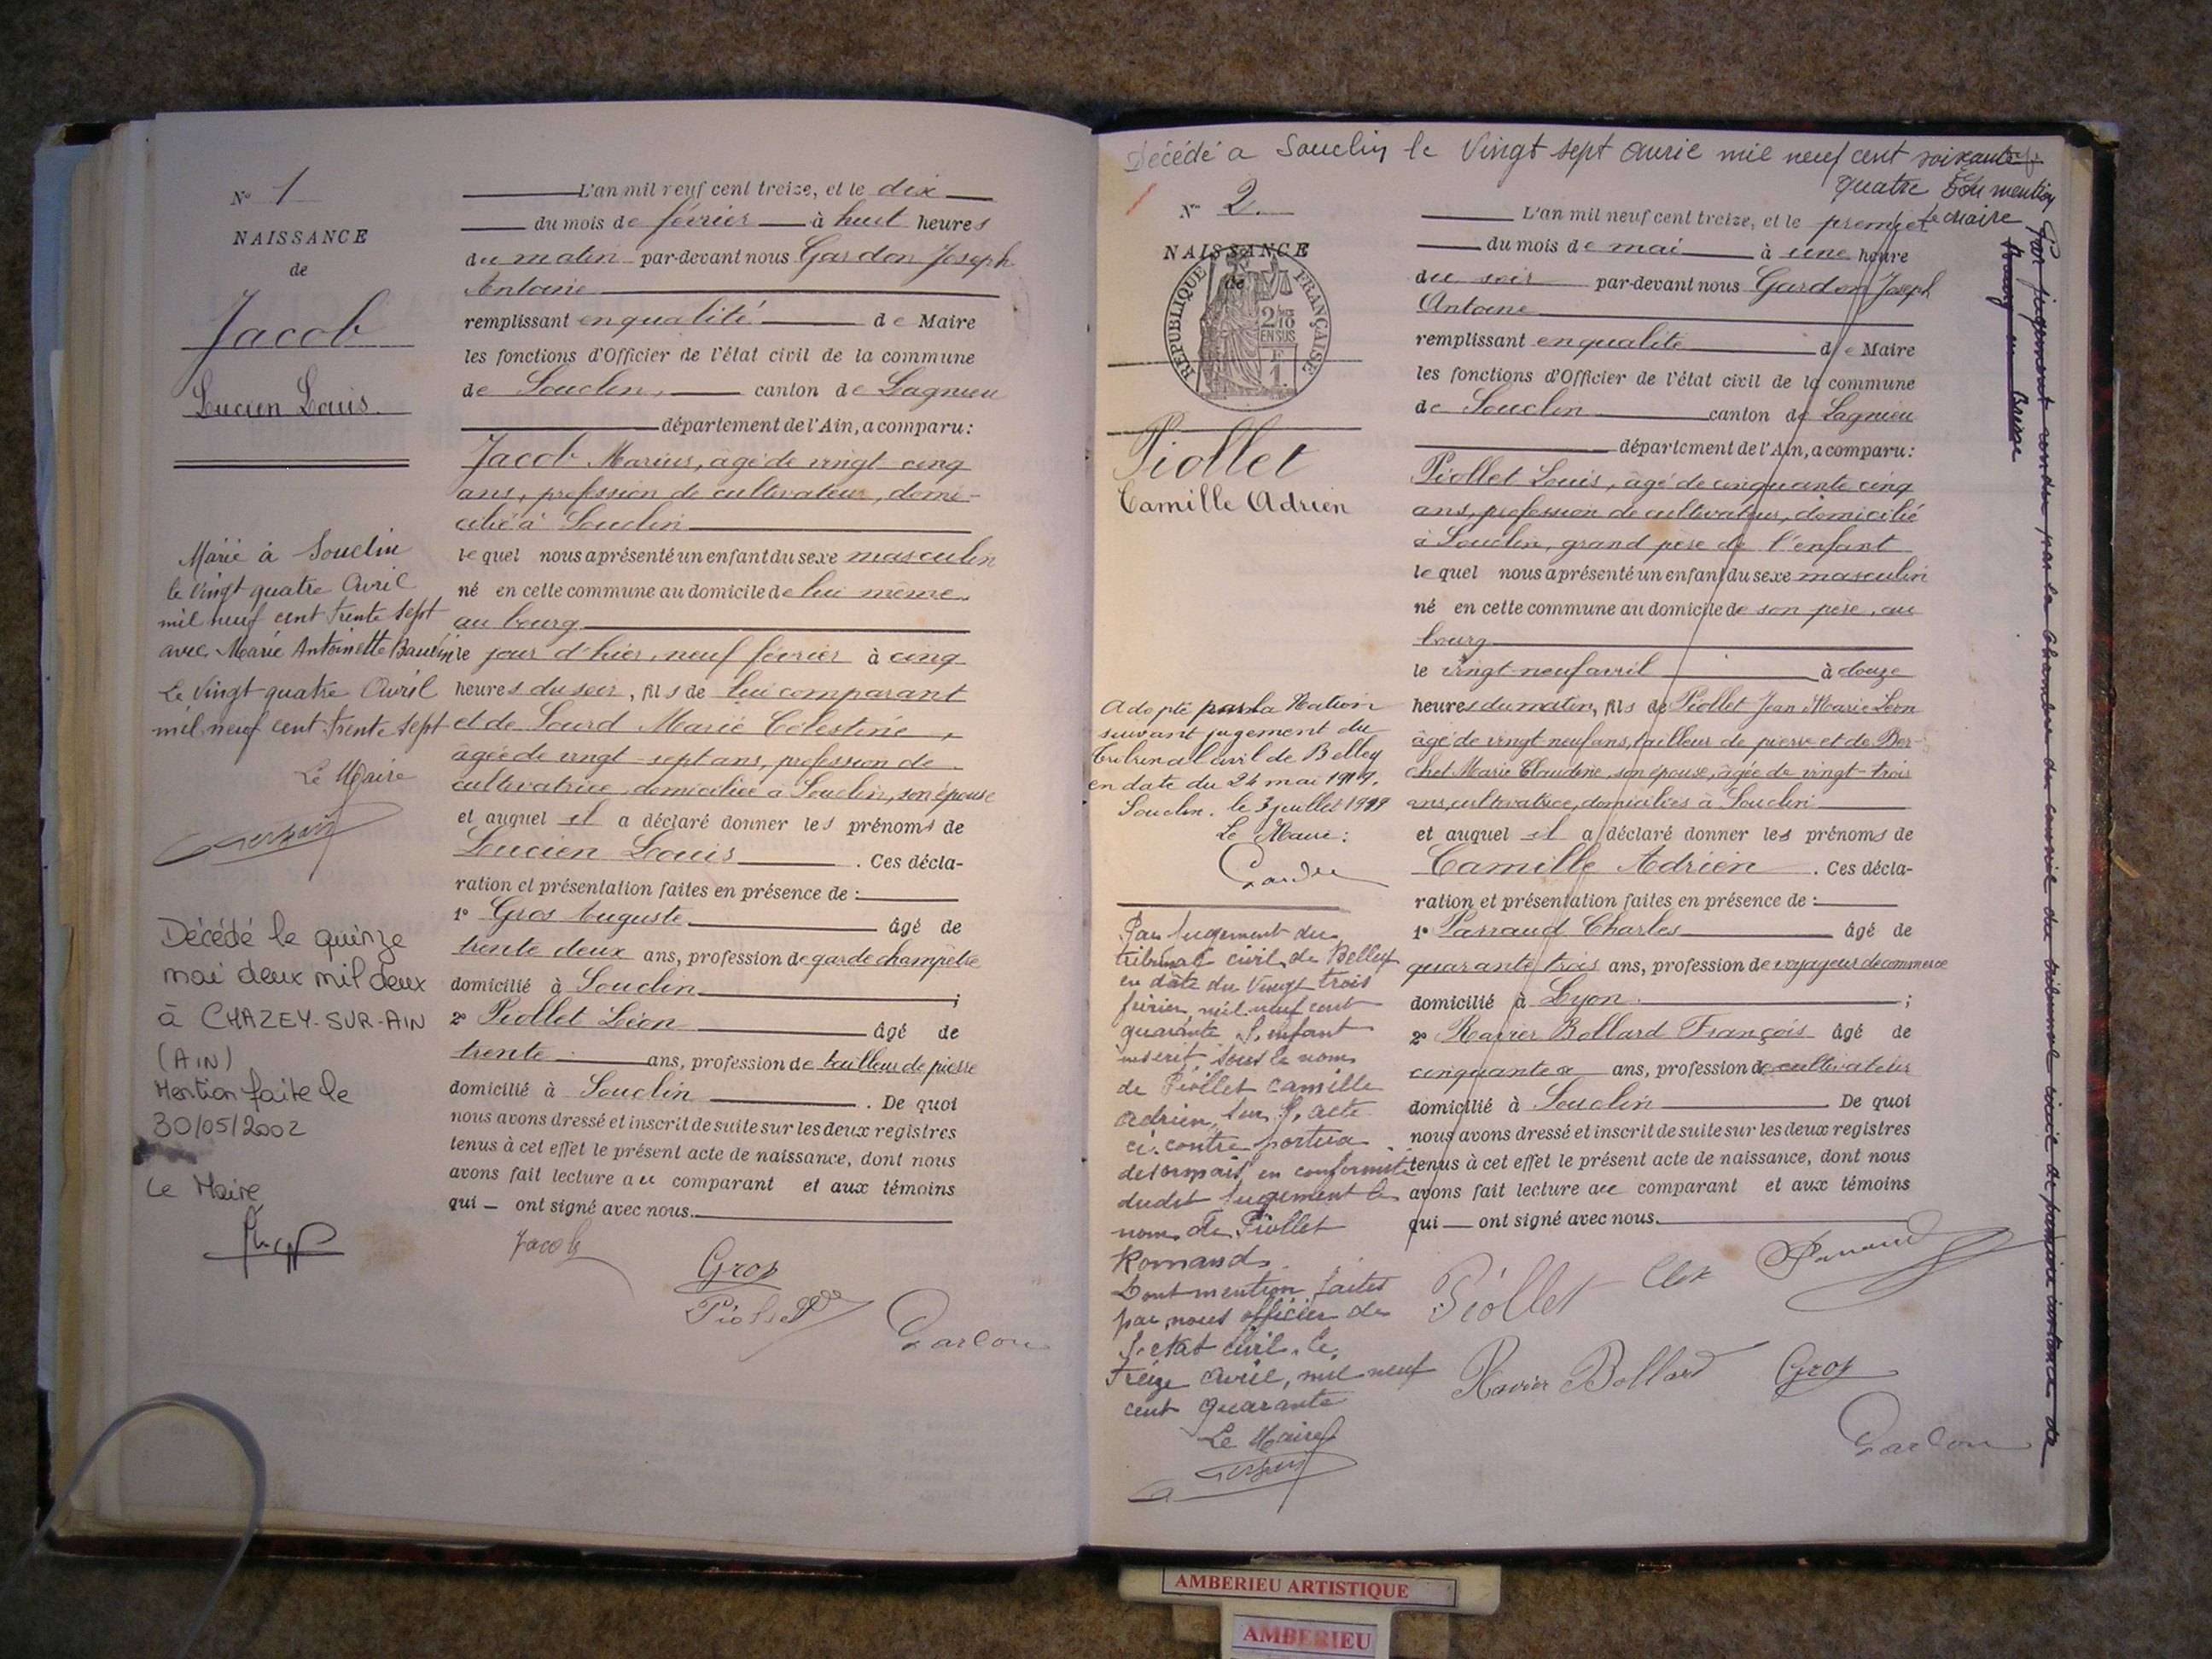 N° 1
NAISSANCE
de
Jacob
Lucien Louis.
Marié à Souclin
le vingt quatre Avril
mil neuf cent trente sept
avec Marie Antoinette Baudin
Le vingt quatre Avril
mil neuf cent trente sept
Le Maire
Décédé le quinze
mai deux mil deux
à CHAZEY-SUR-AIN
(AIN)
Mention faite le
30/05/2002
Le Maire
L'an mil neuf cent treize, et le dix
du mois de février à huit heures
du matin par-devant nous Gardon Joseph
Antoine
remplissant en qualité de Maire
les fonctions d'Officier de l'état civil de la commune
de Souclin, canton de Lagnieu
département de l'Ain, a comparu:
Jacob Marius, âgé de vingt-cinq
ans, profession de cultivateur, domi-
cilié à Souclin
le quel nous a présenté un enfant du sexe masculin
né en cette commune au domicile de lui même,
au bourg
le jour d'hier, neuf février à cinq
heures du soir, fils de lui comparant
et de Sourd Marie Célestine,
âgée de vingt-sept ans, profession de
cultivatrice, domiciliée à Souclin, son épouse
et auquel il a déclaré donner les prénoms de
Lucien Louis . Ces décla-
ration et présentation faites en présence de :
1° Gros Auguste âgé de
trente deux ans, profession de garde champêtre
domicilié à Souclin ;
2° Piollet Léon âgé de
trente ans, profession de tailleur de pierre
domicilié à Souclin . De quoi
nous avons dressé et inscrit de suite sur les deux registres
tenus à cet effet le présent acte de naissance, dont nous
avons fait lecture au comparant et aux témoins
qui — ont signé avec nous.
Jacob
Gros
Piollet
Gardon
Décédé a Souclin le vingt sept Avril mil neuf cent soixante
quatre Dou mention
Le Maire
N° 2.
NAISSANCE
de
RÉPUBLIQUE FRANÇAISE
2/10
EN SUS
F
1.
Piollet
Camille Adrien
Adopté par la Nation
suivant jugement du
tribunal civil de Belley
en date du 24 mai 1919.
Souclin, le 3 juillet 1919
Le Maire:
Gardon
Par Jugement du
tribunal civil de Belley
en date du Vingt trois
février mil neuf cent
quarante l'enfant
inscrit sous le nom
de Piollet Camille
Adrien, sur l'acte
ci-contre portera
désormais en conformité
dudit Jugement le
nom de Piollet
Romand.
Dont mention faites
par nous officier de
l'etat civil le
treize Avril, mil neuf
cent quarante
Le Maire
L'an mil neuf cent treize, et le premier
du mois de mai à une heure
du soir par-devant nous Gardon Joseph
Antoine
remplissant en qualité de Maire
les fonctions d'Officier de l'état civil de la commune
de Souclin canton de Lagnieu
département de l'Ain, a comparu:
Piollet Louis, âgé de cinquante cinq
ans, profession de cultivateur, domicilié
à Souclin, grand père de l'enfant
le quel nous a présenté un enfant du sexe masculin
né en cette commune au domicile de son père, au
bourg
le vingt-neuf avril à douze
heures du matin, fils de Piollet Jean Marie Léon
âgé de vingt neuf ans, tailleur de pierre et de Ber-
chet Marie Claudine, son épouse, âgée de vingt-trois
ans, cultivatrice, domiciliés à Souclin
et auquel il a déclaré donner les prénoms de
Camille Adrien . Ces décla-
ration et présentation faites en présence de :
1° Parraud Charles âgé de
quarante trois ans, profession de voyageur de commerce
domicilié à Lyon ;
2° Ravier Bollard François âgé de
cinquante ans, profession de cultivateur
domicilié à Souclin De quoi
nous avons dressé et inscrit de suite sur les deux registres
tenus à cet effet le présent acte de naissance, dont nous
avons fait lecture au comparant et aux témoins
qui — ont signé avec nous.
Piollet
Parraud
Ravier Bollard
Gros
Gardon
Par jugement rendu par la Chambre du conseil du tribunal civil de première instance de
Bourg en Bresse
AMBERIEU ARTISTIQUE
AMBERIEU